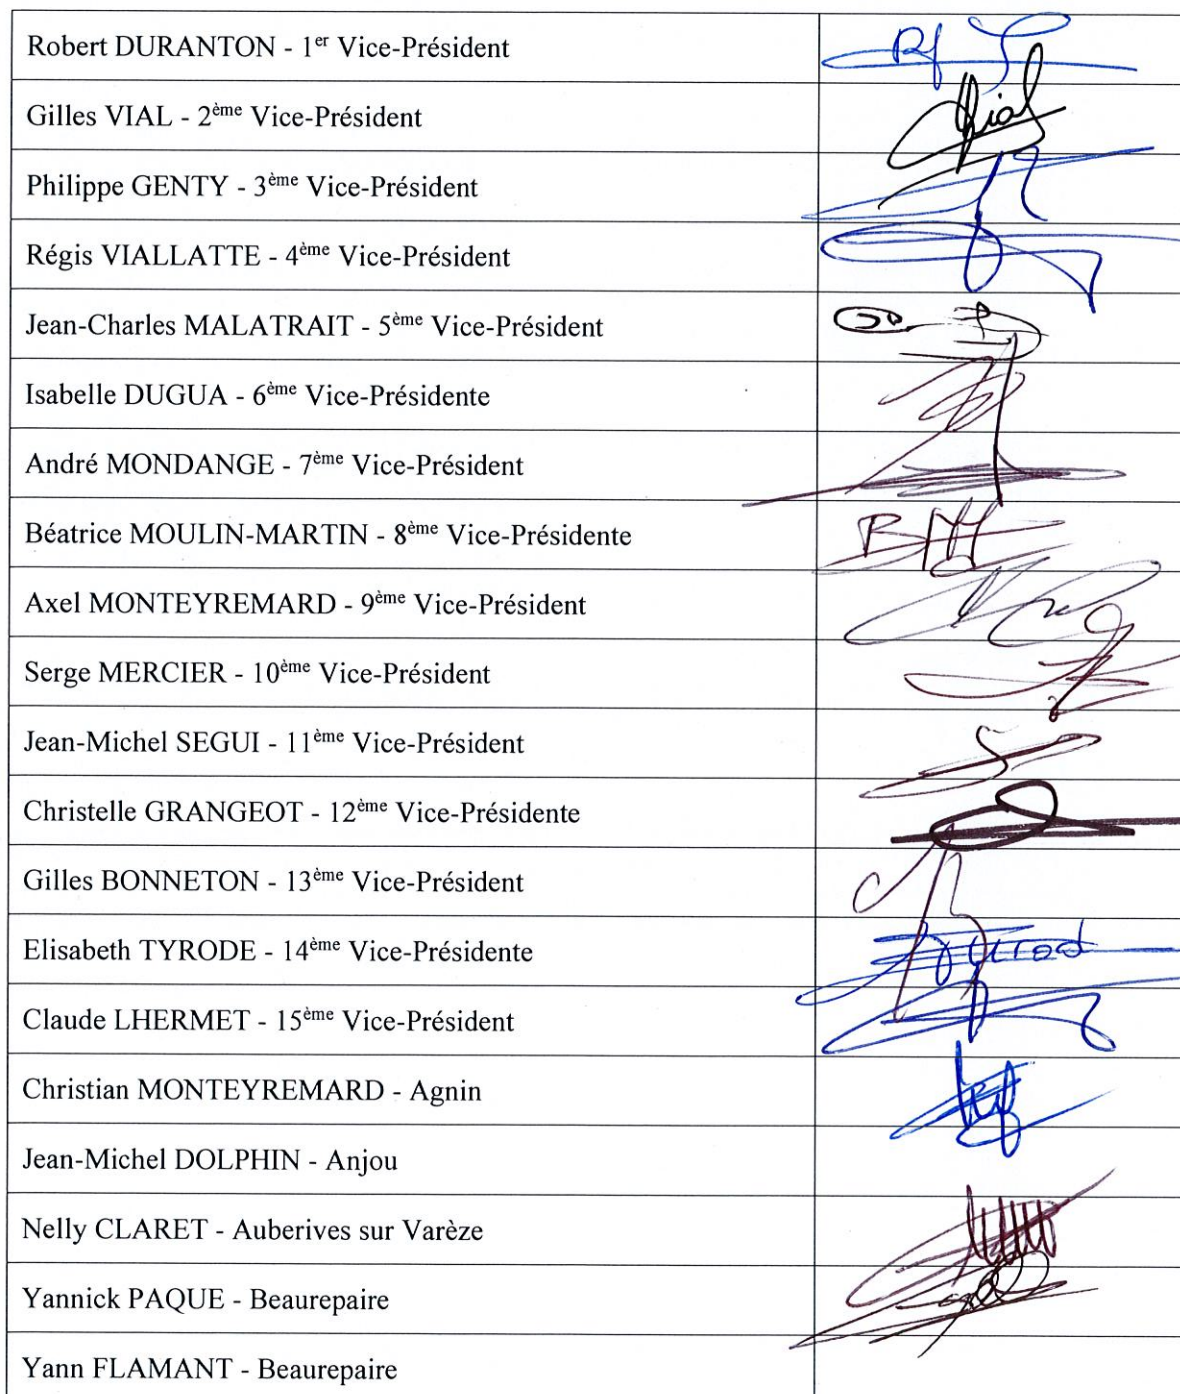 Robert DURANTON - 1er Vice-Président
Gilles VIAL - 2ème Vice-Président
Vial
Philippe GENTY - 3ème Vice-Président
Régis VIALLATTE - 4ème Vice-Président
Jean-Charles MALATRAIT - 5ème Vice-Président
Isabelle DUGUA - 6ème Vice-Présidente
André MONDANGE - 7ème Vice-Président
Béatrice MOULIN-MARTIN - 8ème Vice-Présidente
BMM
Axel MONTEYREMARD - 9ème Vice-Président
Serge MERCIER - 10ème Vice-Président
Jean-Michel SEGUI - 11ème Vice-Président
Christelle GRANGEOT - 12ème Vice-Présidente
Gilles BONNETON - 13ème Vice-Président
Elisabeth TYRODE - 14ème Vice-Présidente
Claude LHERMET - 15ème Vice-Président
Christian MONTEYREMARD - Agnin
Jean-Michel DOLPHIN - Anjou
Nelly CLARET - Auberives sur Varèze
Yannick PAQUE - Beaurepaire
Yann FLAMANT - Beaurepaire